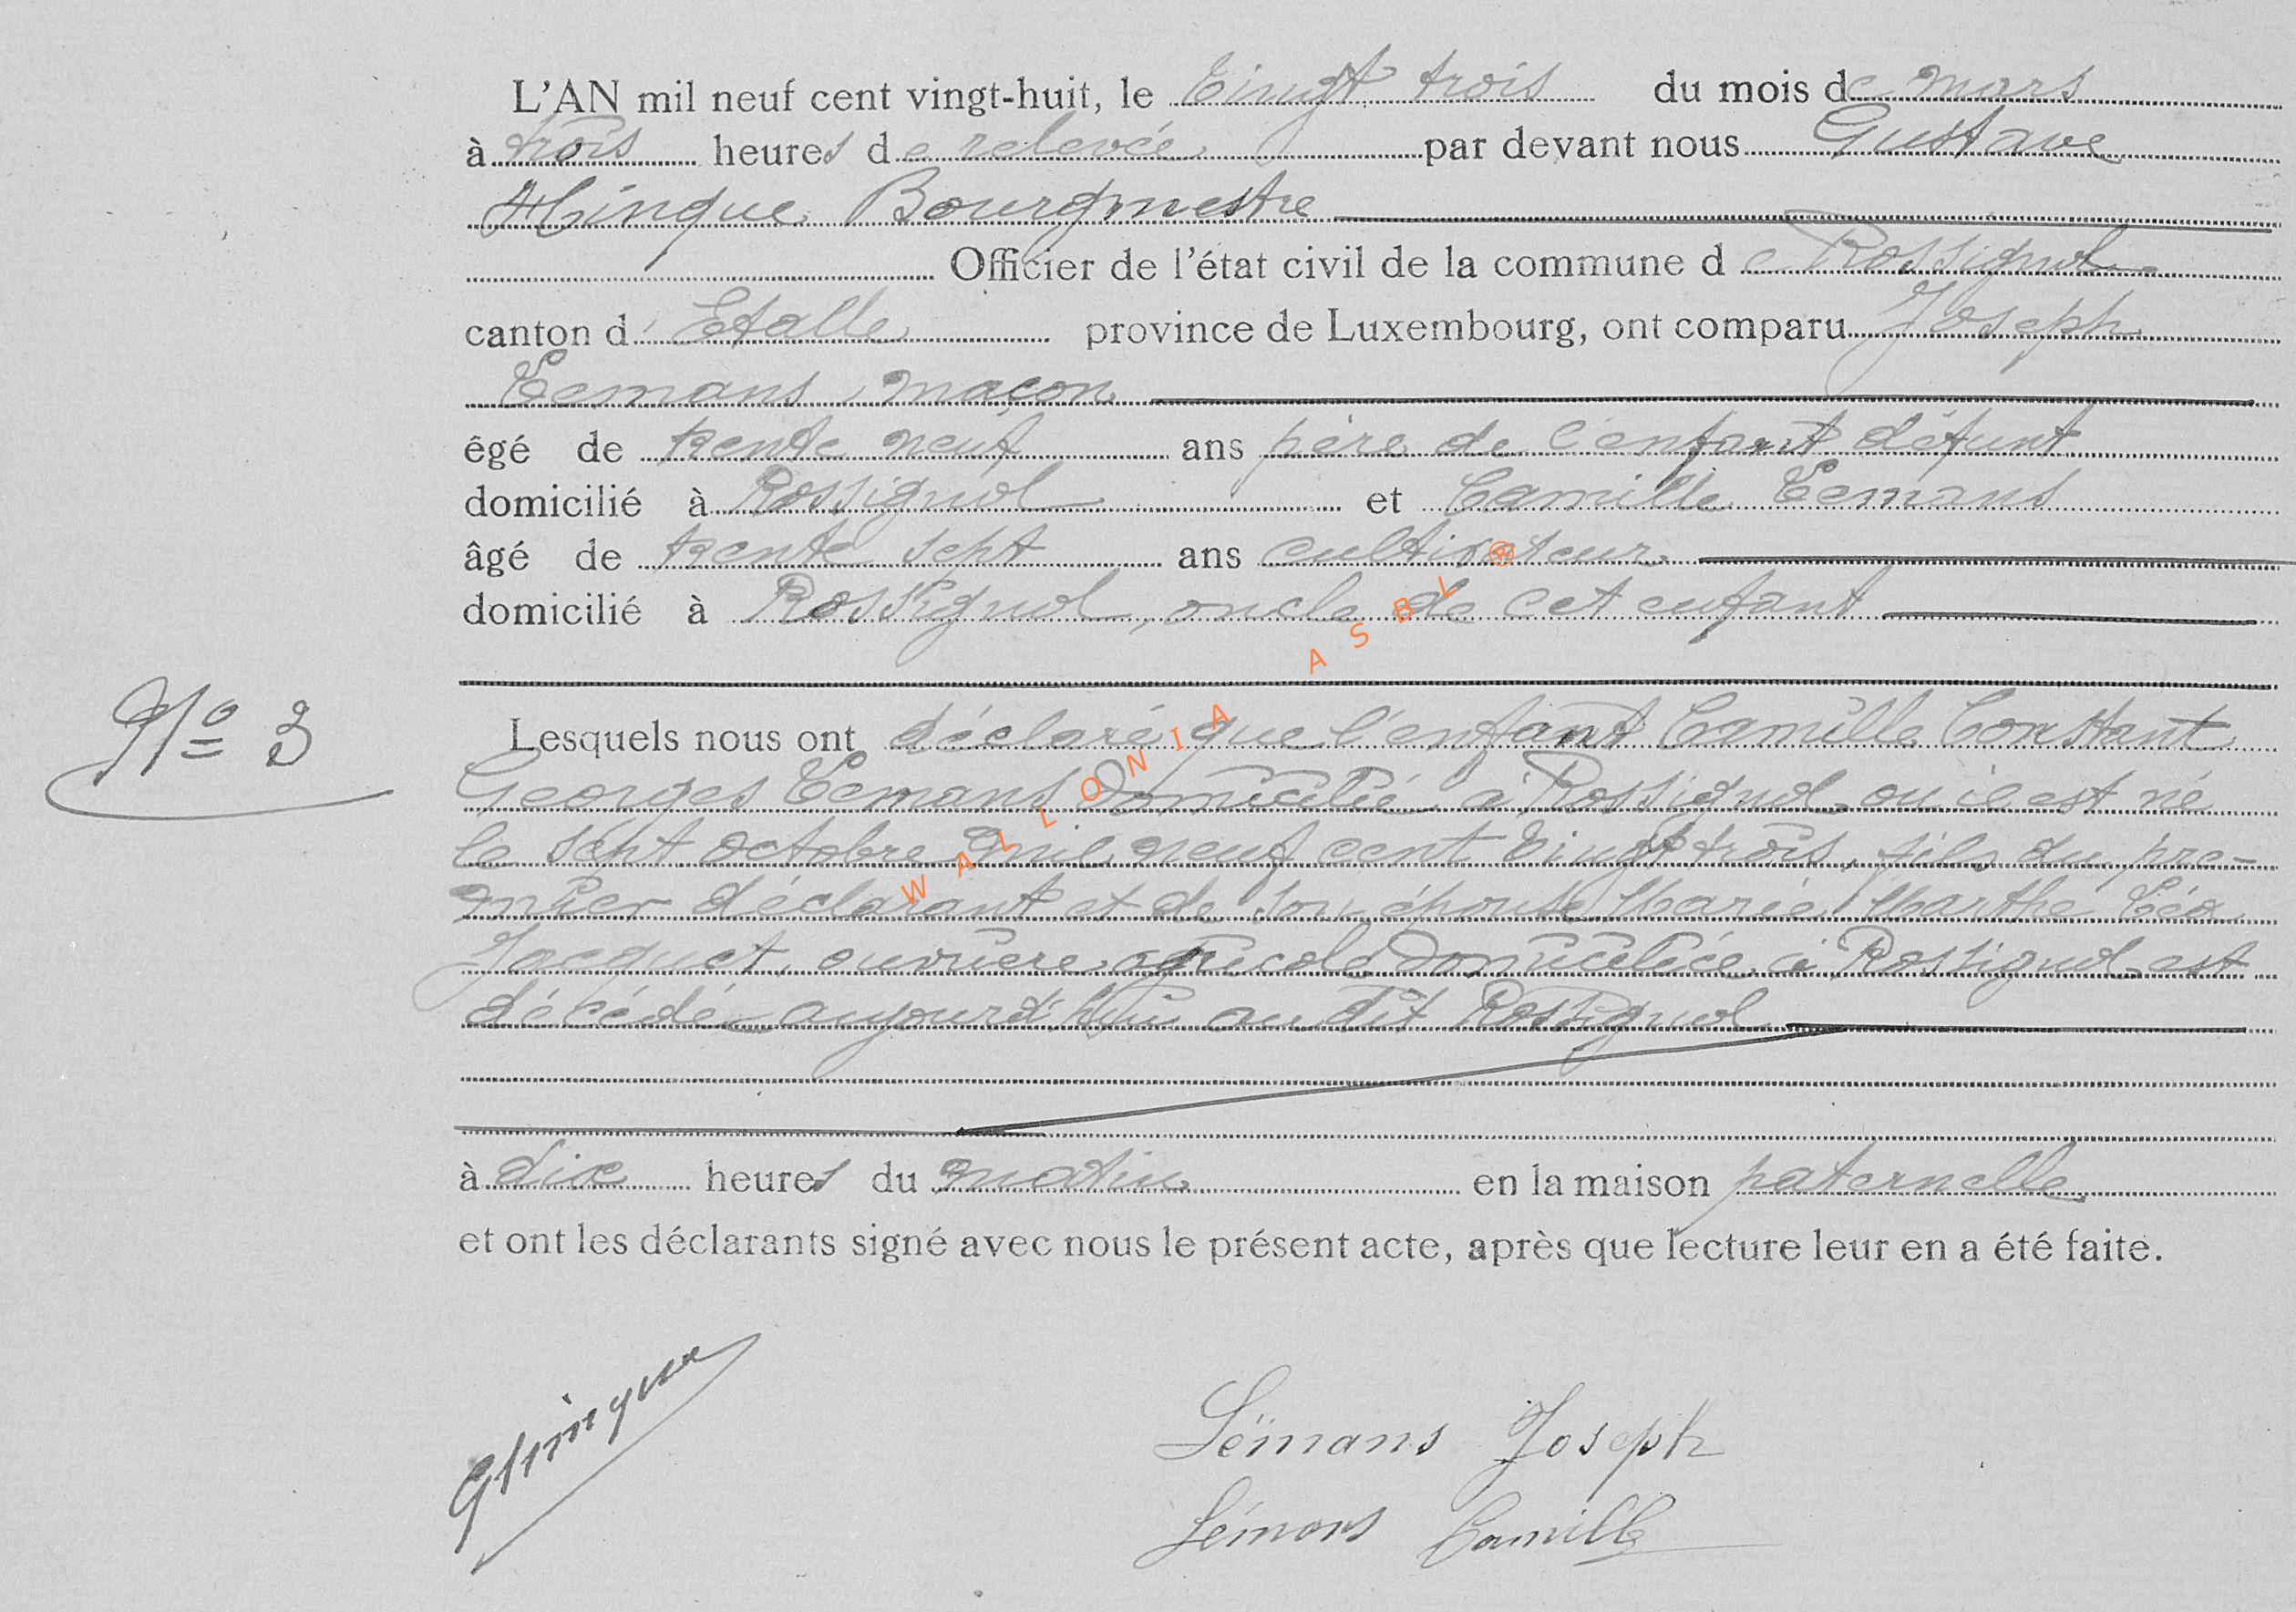 L'AN mil neuf cent vingt-huit, le Vingt trois du mois de mars
à trois heures de relevée par devant nous Gustave
Hinque Bourgmestre
Officier de l'état civil de la commune de Rossignol
canton d'Etalle province de Luxembourg, ont comparu Joseph
Lemans, maçon
égé de trente neuf ans père de l'enfant défunt
domicilié à Rossignol et Camille Lemans
âgé de trente sept ans cultivateur
domicilié à Rossignol, oncle de cet enfant
N° 3
Lesquels nous ont déclaré que l'enfant Camille Constant
Georges Lemans domicilié à Rossignol, ou il est né
le sept octobre mil neuf cent vingt trois, fils du pre-
mier déclarant et de son épouse Marie Marthe Léa
Jacquet, ouvrière agricole domiciliée à Rossignol, est
décédé aujourd'hui au dit Rossignol
à dix heures du matin en la maison paternelle
et ont les déclarants signé avec nous le présent acte, après que lecture leur en a été faite.
GHinque
Lémans Joseph
Lémans Camille
WALLONIA ASBL ®